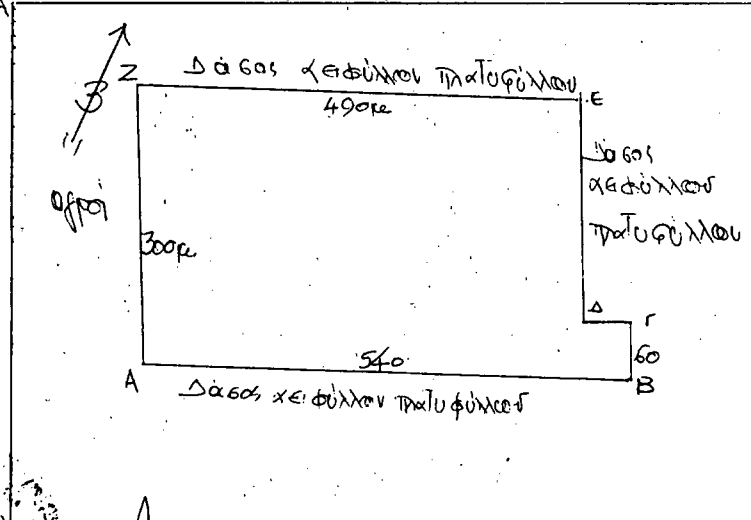 Ζ
Δάσος αειφύλλου πλατυφύλλου
490μ
Ε
Β
αγροί
Δάσος
αειφύλλου
πλατυφύλλου
300μ
Δ
Γ
60
540
Α
Β
Δάσος αειφύλλου πλατυφύλλου